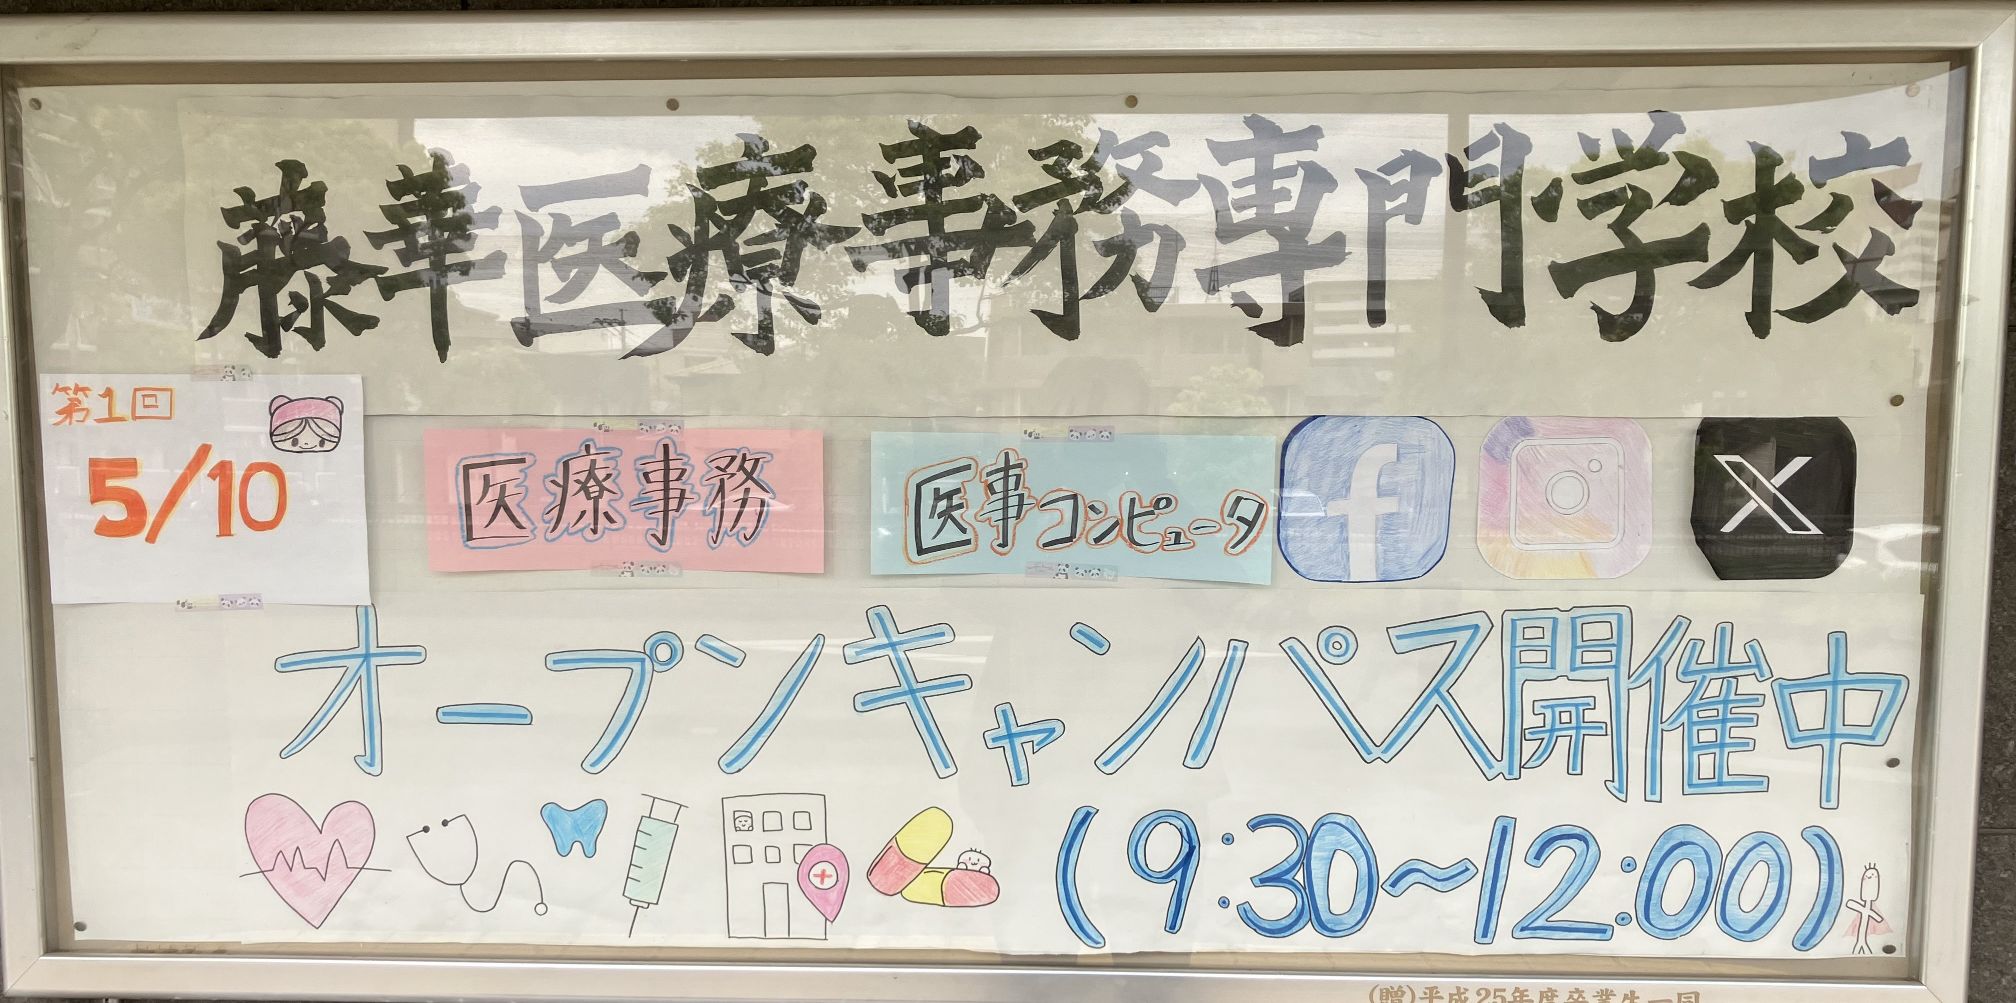 藤華医療事務専門学校
第1回
5/10
医療事務
医事コンピュータ
f
X
オープンキャンパス開催中
(9:30〜12:00)
(贈)平成25年度卒業生一同